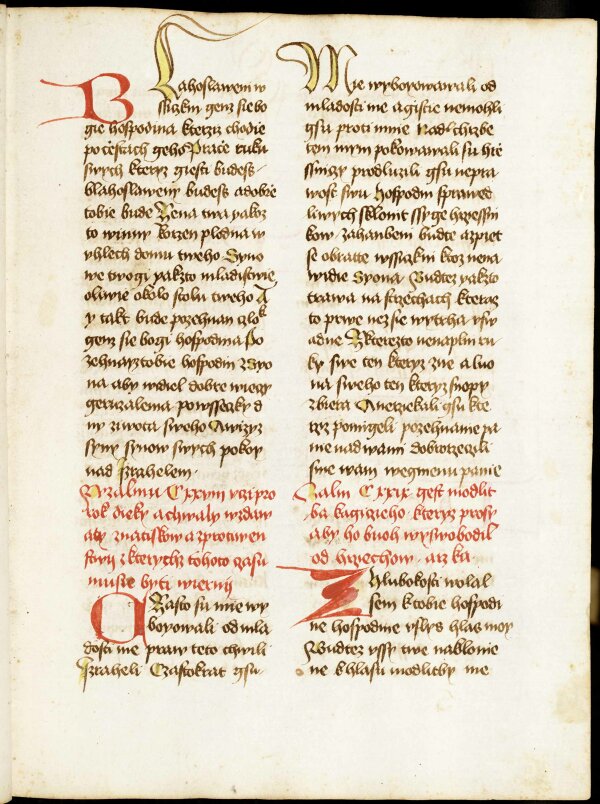 BLahoslaweni w
ssiczkni genz sie bo
gie hospodina kterzu chodie
po cestach geho Prace ruku
swych kteryz giesti budess
blahoslaweny budess a dobrze
tobie bude Zena twa yakoz
to winny korzen plodna w
uhlech domu tweho Syno
we twogi yakzto mladistwie
oliwie okolo stolu tweho A
y takt bude pozehnan czlo
gem sie bogi hospodina Po
zehnayz tobie hospodin z Syo
na aby widiel dobre wieczy
geruzalema po wsseczky d
ny ziwota sweho A wizyz
syny synow swych pokoy
nad Izrahelem
Zzalmu CXXVIII uczi pro
rok dieky a chwaly wzdaw
aty z natiskow a z protiwen
stwij z kterychz tohoto czasu
musie byti wiernij
CZasto su mie wy
boyowali od mla
dosti me praw teto chwili
Izraheli Czastokrat gsu
Mie wyboyowawali od
mladosti me a gistie nemohli
gsu proti mnie Nad chrzbe
tem mym pokowawali su hrie
ssniczy prodluzili gsu nepra
wost swu hospodin sprawed
liwych sklonil ssyge hrziessni
kow zahanbeni budte a zpiet
se obratte wssiczkni ktoz nena
widie Syona Budtez yakzto
trawa na strzechach kteraz
to prwe nez sie wytrha usw
adne Z kterezto nenaplni ru
ky swe ten kteryz zne a luo
na sweho ten kteryz snopy
zbiera A nerziekali gsu kte
rzz pomigeli pozehnanie pa
nie nad wami dobrorzeczili
sme wam we gmenu panie
Zalm CXXIX gest modlit
ba kagiczieho kteryz prosy
aby ho buoh wyswobodil
od hrziechow a rzka
Z Hlubokosti wolal
sem k tobie hospodi
ne hospodine uslyss hlas moy
Budtez ussy twe naklonie
ne k hlasu modlitby me